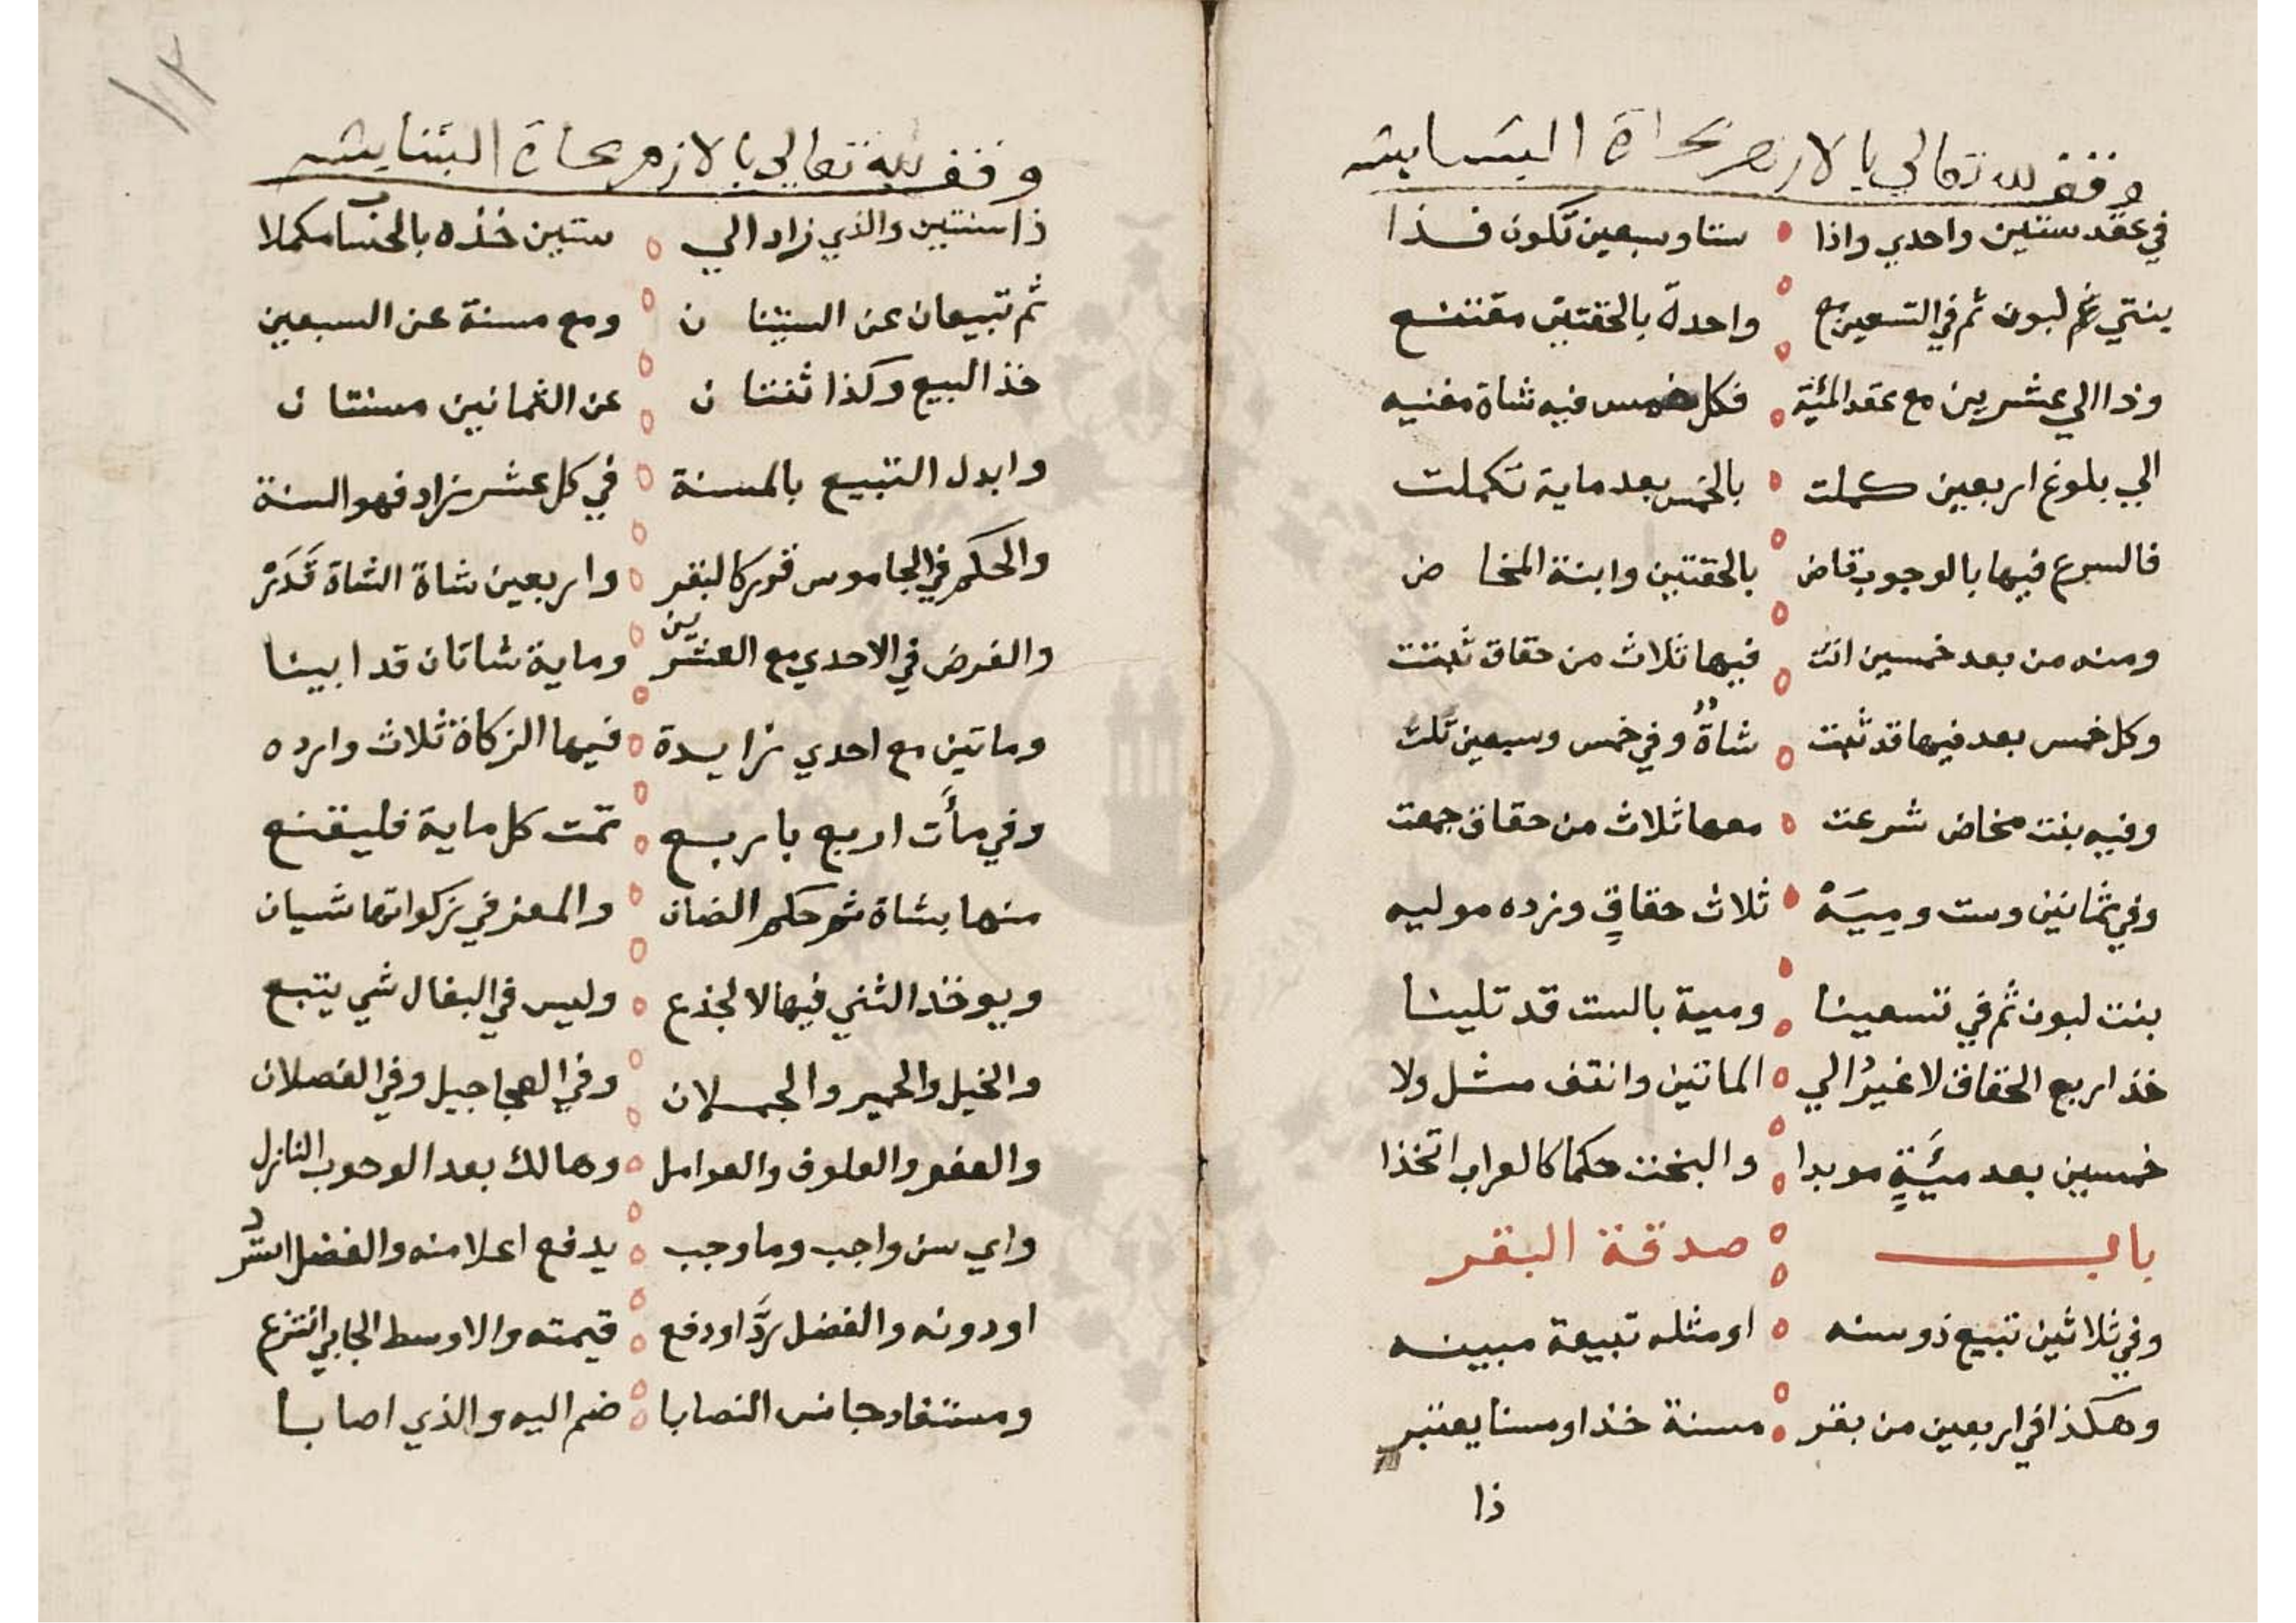 وقف لله تعالى بالازهر بحارة البشابشه
في عقد ستين واحدي واذا ستا وسبعين تكون فذا
بنتي لبون ثم في التسعين مع واحدة بالحقتين مقتنع
وذا الي عشرين مع عقد المئة فكل خمس فيه شاة مغنيه
الي بلوغ اربعين كملت بالخمس بعد ماية تكملت
فالسرع فيها بالوجوب قاض بالحقتين وابنة المخا ض
ومنه من بعد خمسين اتت فيها ثلاث من حقاق ثبتت
وكل خمس بعد فيها قد ثبتت شاةٌ وفي خمس وسبعين تلت
وفيه بنت مخاض شرعت معها ثلاث من حقاق جمعت
وفي ثمانين وست وميَهْ ثلاث حقاقٍ وزده موليه
بنت لبون ثم في تسعينا ومية بالست قد تلينا
خذ اربع الحقاق لا غيرُ الي الماتين وانتف مثل ولا
خمسين بعد ميَّةٍ موبدا والبخت حكما كالعراب اتخذا
باب صدقة البقر
وفي ثلاثين تبيع ذو سنه او مثله تبيعة مبينه
وهكذا في اربعين من بقر مسنة خذ او مسنا يعتبر
ذا
١٢
وقف لله تعالي بالازهر بحارة البشابشه
ذا سنتين والذي زاد الي ستين خذه بالحساب مكملا
ثم تبيعان عن الستينا ن ومع مسنة عن السبعين
خذ البيع وكذا ثنتا ن عن الثمانين مسنتا ن
وابدل التبيع بالمسنة في كل عشر زاد فهو السنة
والحكم في الجاموس قرر كالبقر واربعين شاة الشاة قَدَرْ
والفرض في الاحدي مع العشرين وماية شاتان قد ابينا
وماتين مع احدي زايدة فيها الزكاة ثلاث وارده
وفي مأت اربع باربع تمت كل ماية فليقنع
منها بشاة ثم حكم الضان والمعز في زكواتها شيان
ويوخذ الثني فيها لا الجذع وليس في البغال شي يتبع
والخيل والحمير والجملان وفي العجاجيل وفي الفصلان
والعفو والعلوف والعوامل وهالك بعد الوجوب النازل
واي سن واجب وما وجب يدفع اعلا منه والفضل استرد
او دونه والفضل ردَّ او دفع قيمته والاوسط الجابي انتزع
ومستفاد جانس النصابا ضم اليه والذي اصابا